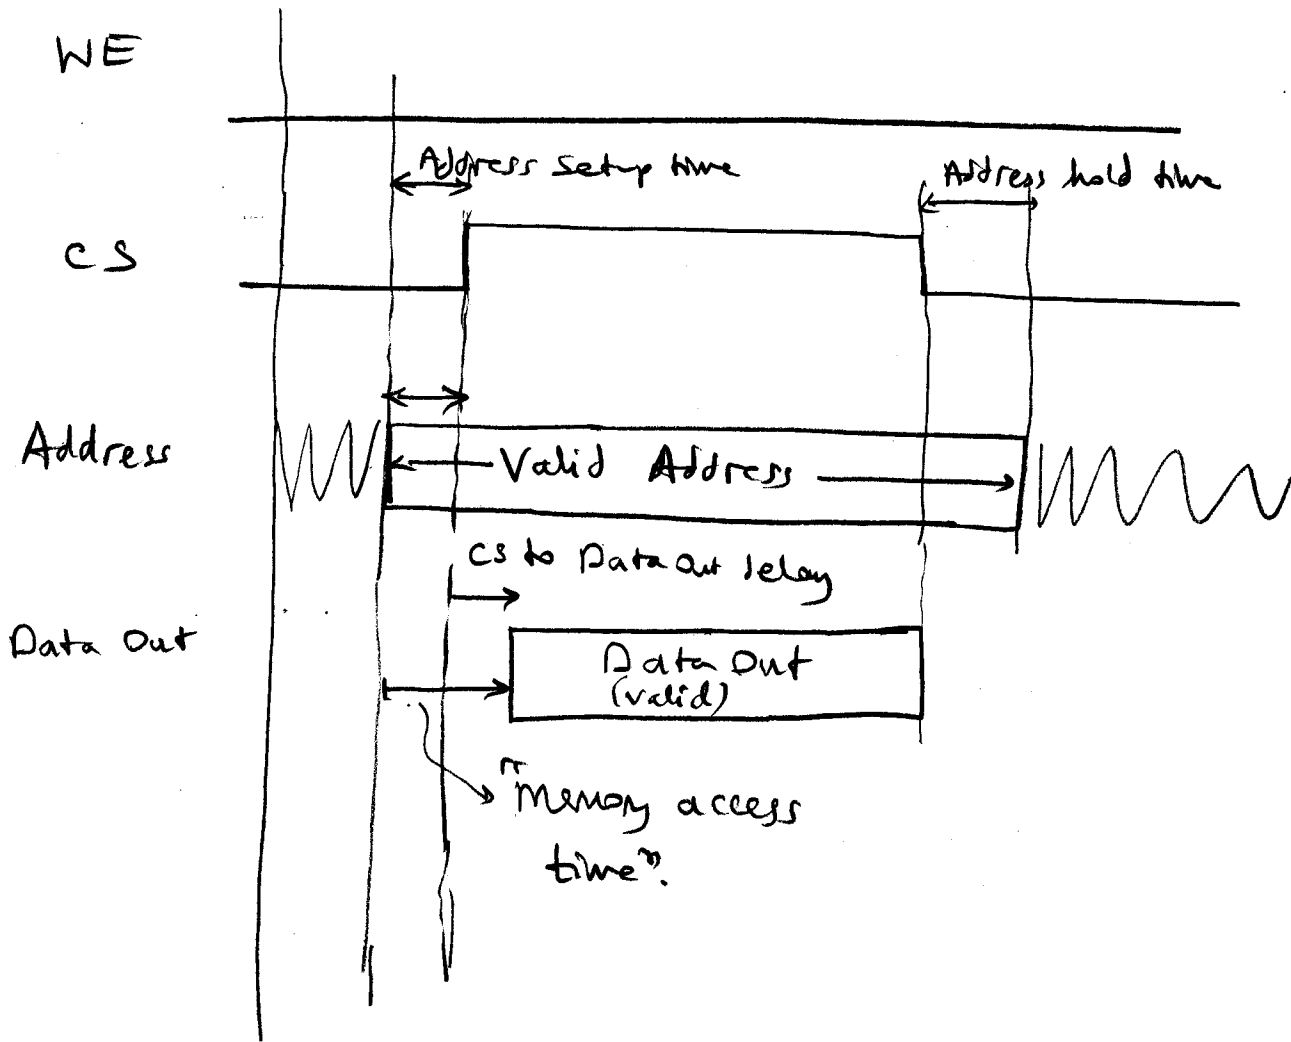 WE
Address setup time
Address hold time
CS
Address
Valid Address
CS to Data Out delay
Data Out
Data Out
(valid)
"Memory access
time".